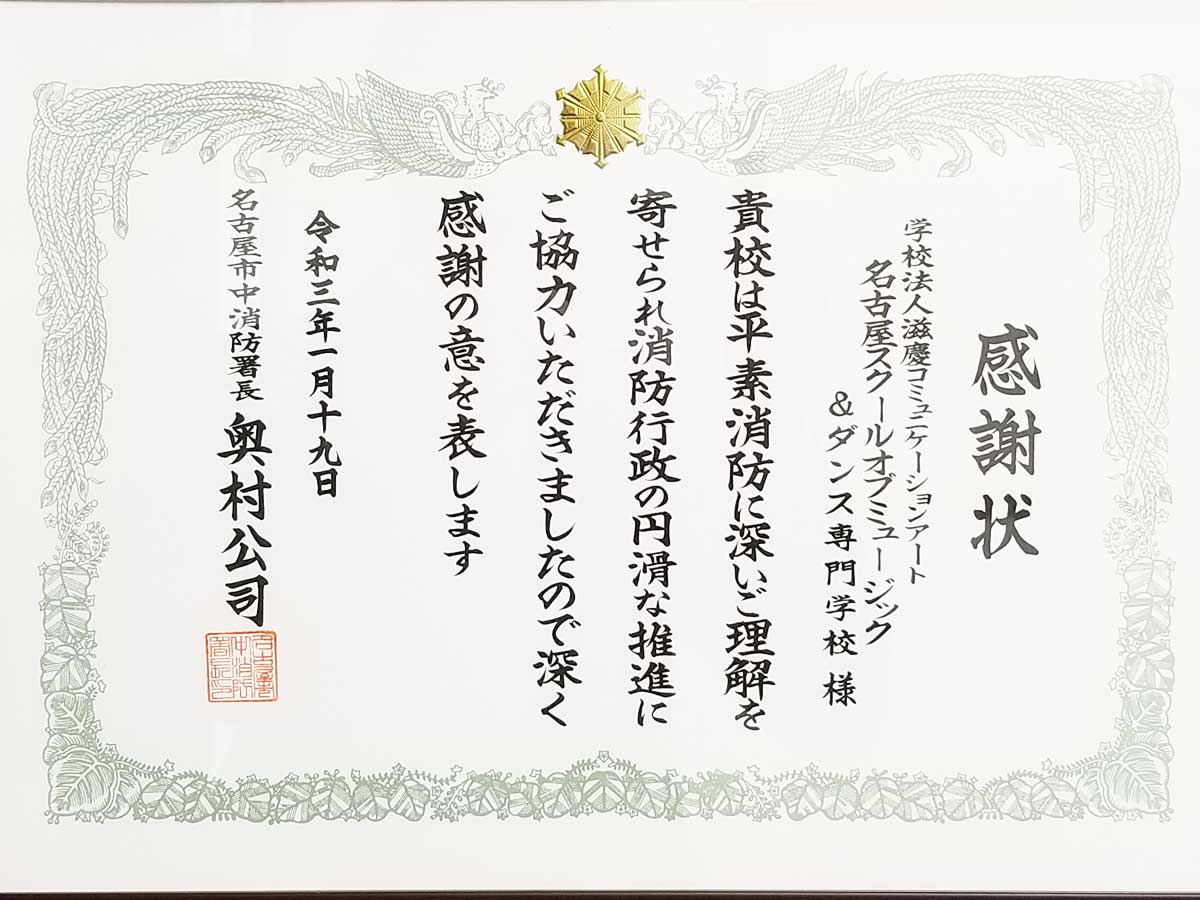 感謝状
学校法人滋慶コミュニケーションアート
名古屋スクールオブミュージック
&ダンス専門学校 様
貴校は平素消防に深いご理解を
寄せられ消防行政の円滑な推進に
ご協力いただきましたので深く
感謝の意を表します
令和三年一月十九日
名古屋市中消防署長 奥村公司